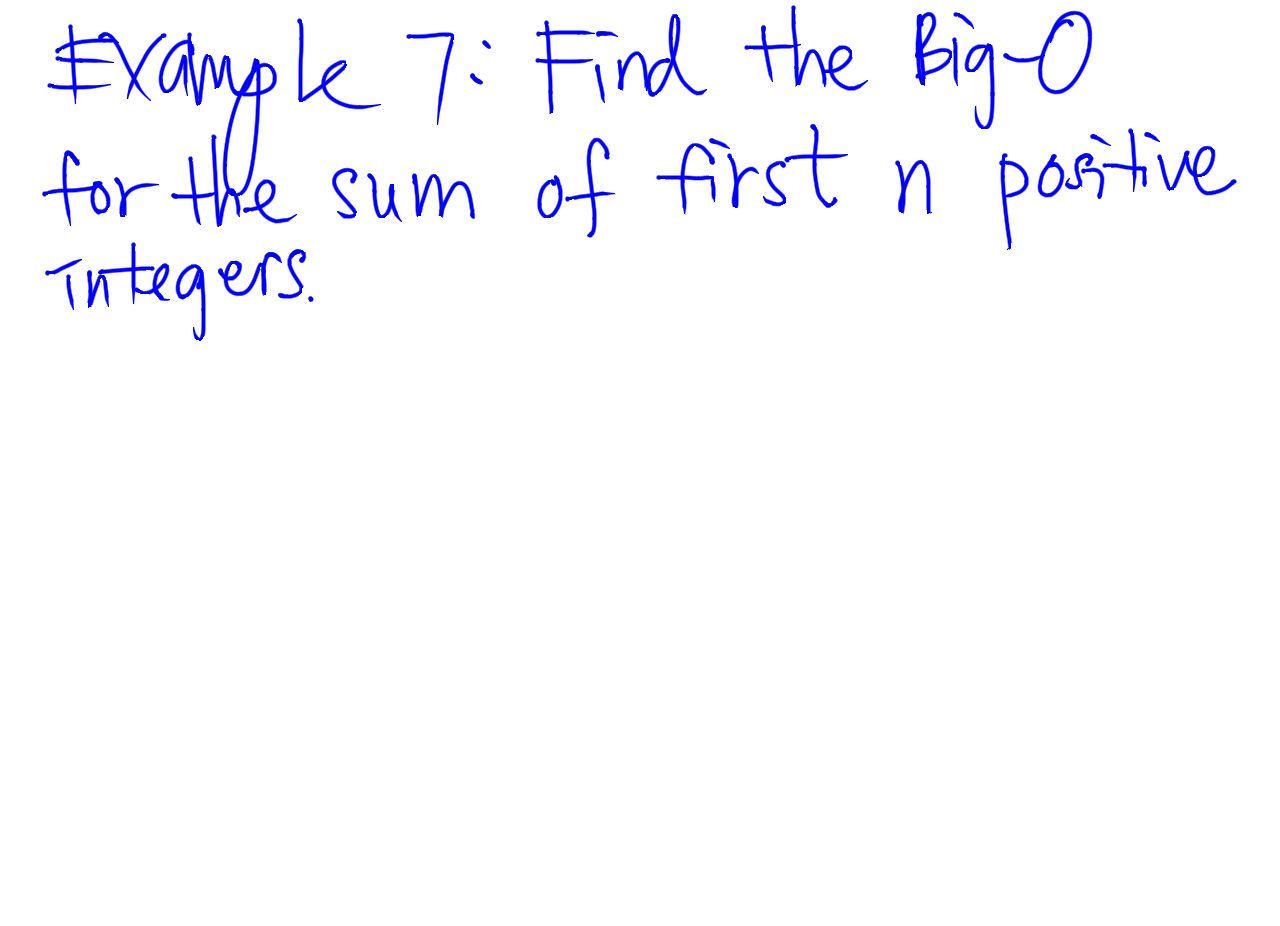 Example 7: Find the Big-O
for the sum of first n positive
integers.